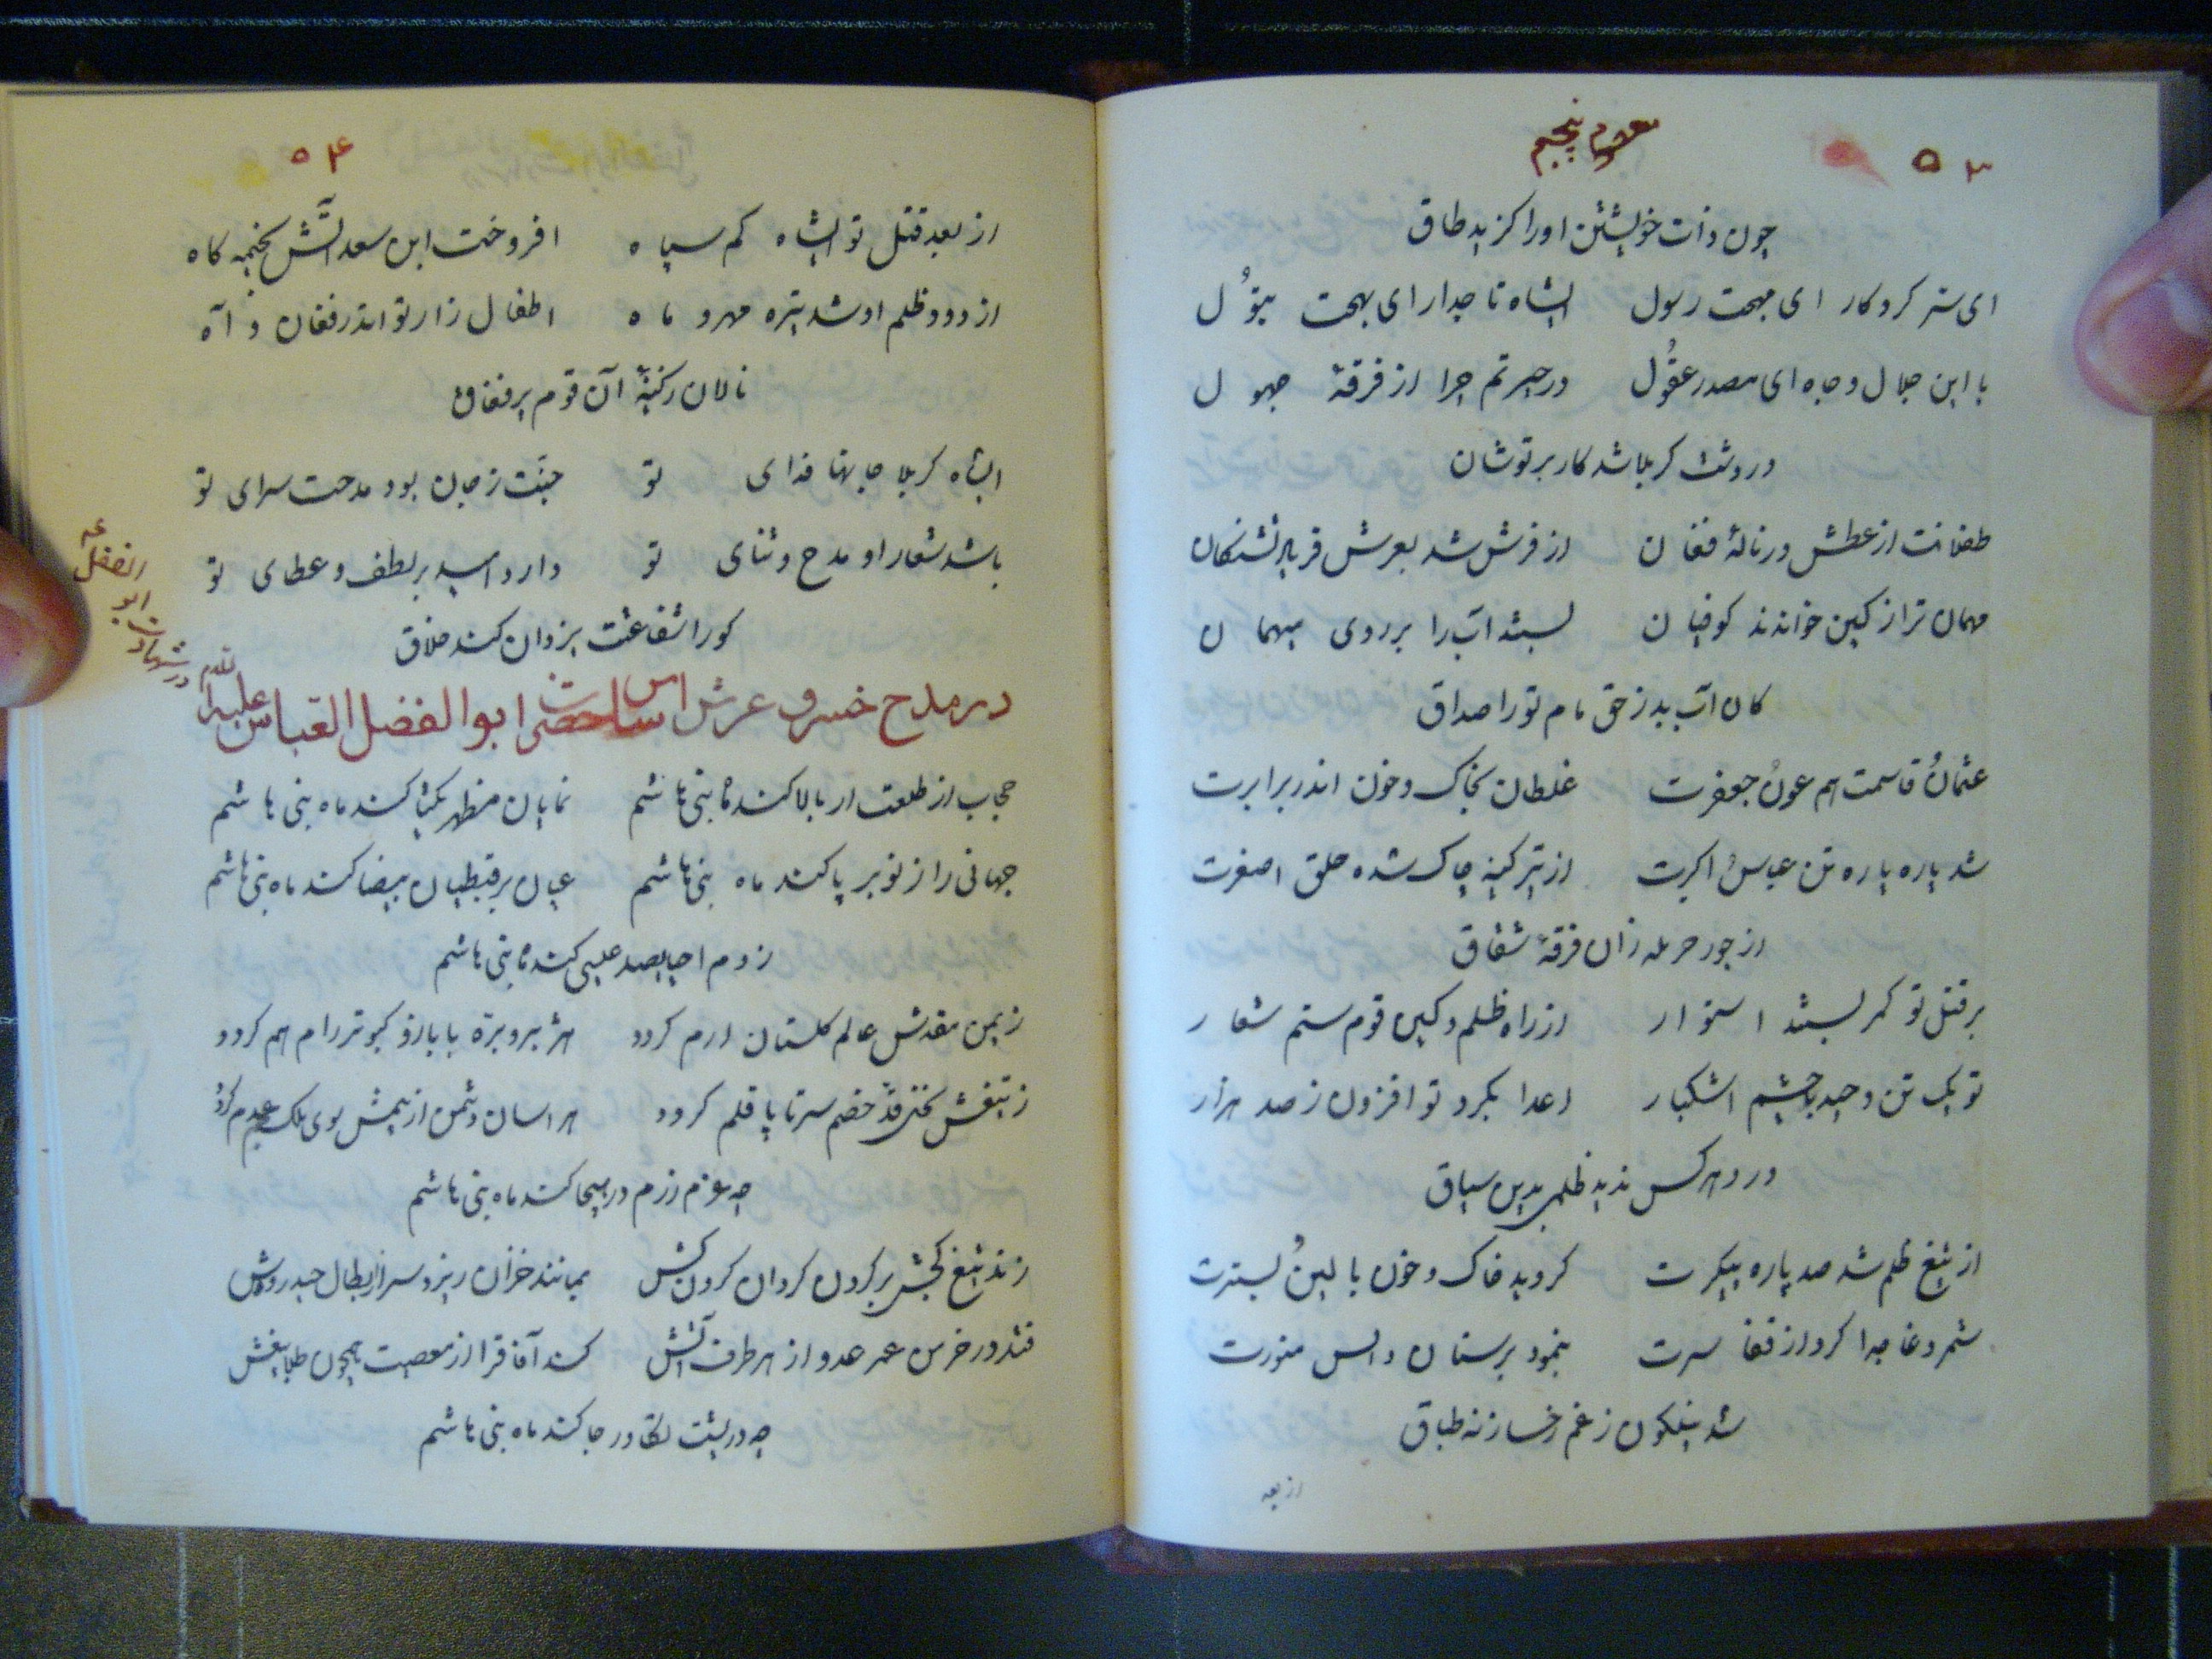 ۵۳
چون ذات خویشتن اورا گزید طاق
ای سر کردکار ای مهجت رسول ایشاه تاجدار ای بهجت بتول
با این جلال و جاه ای مصدر عقول در حیرتم چرا از فرقهٔ جهول
در دشت کربلا شد کار بر تو شان
طفلانت از عطش در نالهٔ فغان از فرش شد بعرش فریاد تشنکان
مهمان ترا ز کین خواندند کوفیان بستند آب را بر روی میهمان
کان آب بد ز حق مام تو را صداق
عثمان قاسمت هم عون جعفرت غلطان بخاک و خون اندر برابرت
شد پاره پاره تن عباس اکبرت از تیر کینه چاک شده حلق اصغرت
از جور حرمله زان فرقهٔ شقاق
بر قتل تو کمر بستند استوار از راه ظلم و کین قوم ستم شعار
تو یک تن وحید با چشم اشکبار اعدا بکرد تو افزون ز صد هزار
در دهر کس ندید ظلمی بدین سیاق
از تیغ ظلم شد صد پاره پیکرت کردید خاک و خون بالین بسترت
شمر دغا جدا کرد از قفا سرت بنمود بر سنان راس منورت
شد نیلکون ز غم رخسار نه طباق
از بعد
۵۴
از بعد قتل تو ایشاه کم سپاه افروخت ابن سعد آتش بخیمه کاه
از دود ظلم او شد تیره مهر و ماه اطفال زار تو اندر فغان و آه
نالان ز کینهٔ آن قوم پر نفاق
ایشاه کربلا جانها فدای تو جنّت ز جان بود مدحت سرای تو
باشد شعار او مدح و ثنای تو دارد امید بر لطف و عطای تو
کورا شفاعتت یزدان کند خلاق
در شهادت ابو الفضل ع
در مدح خسرو عرش اساس حضرت ابوالفضل العباس علیه السلام
حجاب از طلعت ار بالا کند ماه بنی هاشم نمایان مظهر یکتا کند ماه بنی هاشم
جهانی را ز نو بر پا کند ماه بنی هاشم عیان بر قبطیان بیضا کند ماه بنی هاشم
ز دم احیا بصد عیسی کند ماه بنی هاشم
ز یمن مقدمش عالم کلستان ارم کردد هژبر و بره با باز و کبوتر رام هم کردد
ز تیغش قد خصم سر تا پا قلم کردد هراسان دشمن از بیمش بسوی ملک عدم کردد
چه عزم رزم در هیجا کند ماه بنی هاشم
زند تیغ کجش بر کردن کردان کردن کش بمانند خزان ریزد سر از ابطال حیدر وش
فتد در خرمن عمر عدو از هر طرف آتش
چه در پشت تکاور جا کند ماه بنی هاشم